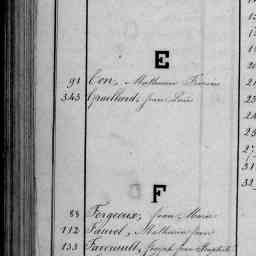 E
91 Eon, Mathurin François
343 Epaillard, Jean Louis
F
88 Fergeoux, Jean Marie
112 Fauvel, Mathurin Jean
133 Farouault, Joseph Jean Baptiste